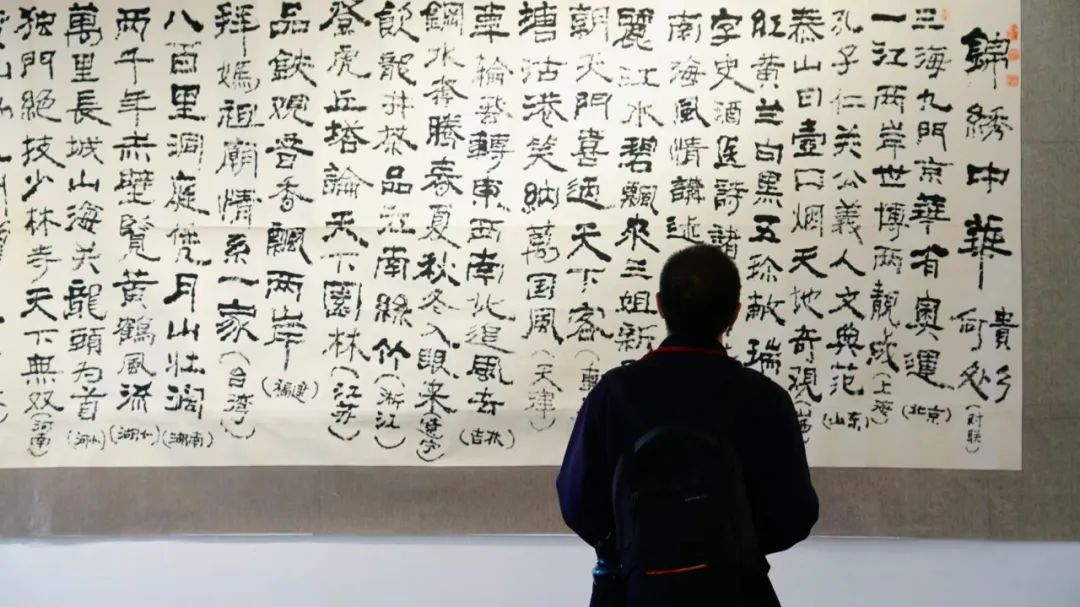 錦綉中華 貴乡何处 (对联)
三海九門京華有奥運 (北京)
一江两岸世博两靓成 (上海)
孔子仁关公義人文典范 (山东)
泰山日壶口烟天地奇观 (山西)
紅黄兰白黑五珍敝瑞
字史酒医詩諸
南海風情講述
麗江水碧飄泉三姐新
朝天門喜迎天下客
塘沽港笑納萬国風 (天津)
車輪飛轉東西南北追風去 (吉林)
鋼水奔騰春夏秋冬入眼来 (辽宁)
飲龍井茶品江南絲竹 (浙江)
登虎丘塔論天下園林 (江苏)
品鉄观音香飄两岸 (福建)
拜媽祖廟情系一家 (台湾)
八百里洞庭月山壮阔 (湖南)
两千年赤壁覧黄鶴風流 (湖北)
萬里長城山海关龍頭为首 (河北)
独門絶技少林寺天下無双 (河南)